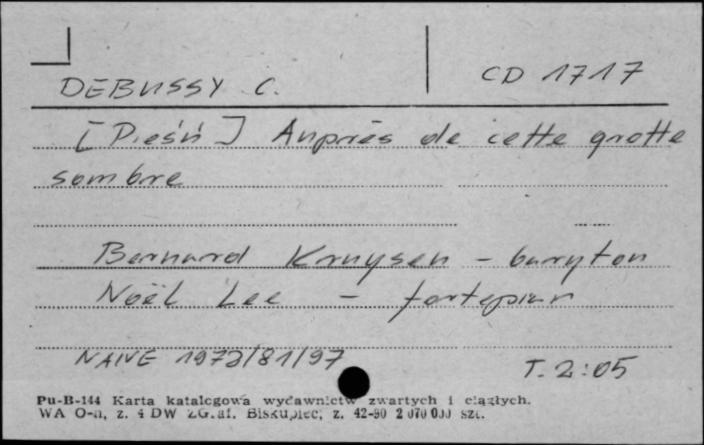 DEBUSSY C.
CD 1717
[Pieśń] Auprès de cette grotte
sombre
Bernard Kruysen - baryton
Noël Lee - fortepian
NAIVE 1972/81/97
T. 2:05
Pu-B-144 Karta katalogowa wydawnictw zwartych i ciągłych.
WA O-n, z. 4 DW Biskupiec, z. 42-90 2 070 000 szt.